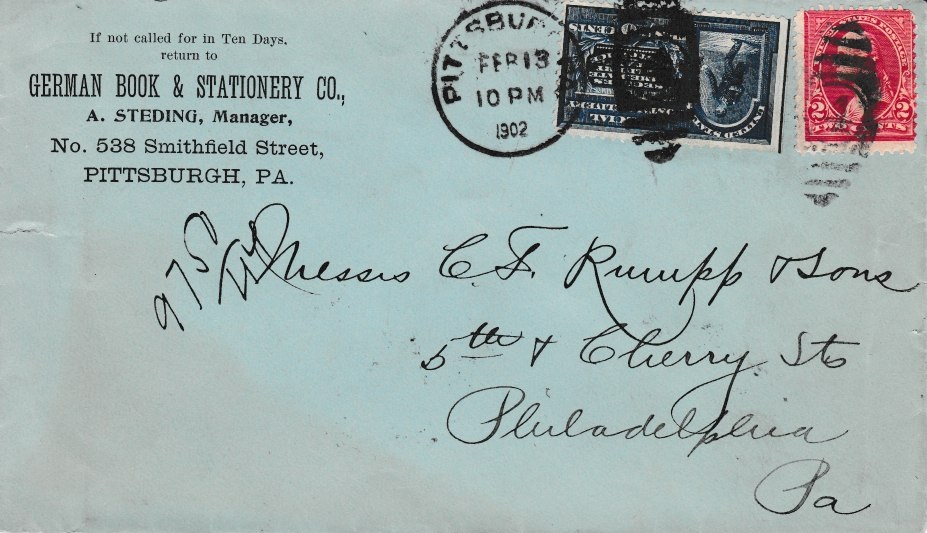 If not called for in Ten Days,
return to
GERMAN BOOK & STATIONERY CO.,
A. STEDING, Manager,
No. 538 Smithfield Street,
PITTSBURGH, PA.
PITTSBUR
FEB 13
10 PM
1902
2 2
CENTS
Messrs C. F. Rumpp & Sons
5th & Cherry Sts
Philadelphia
Pa